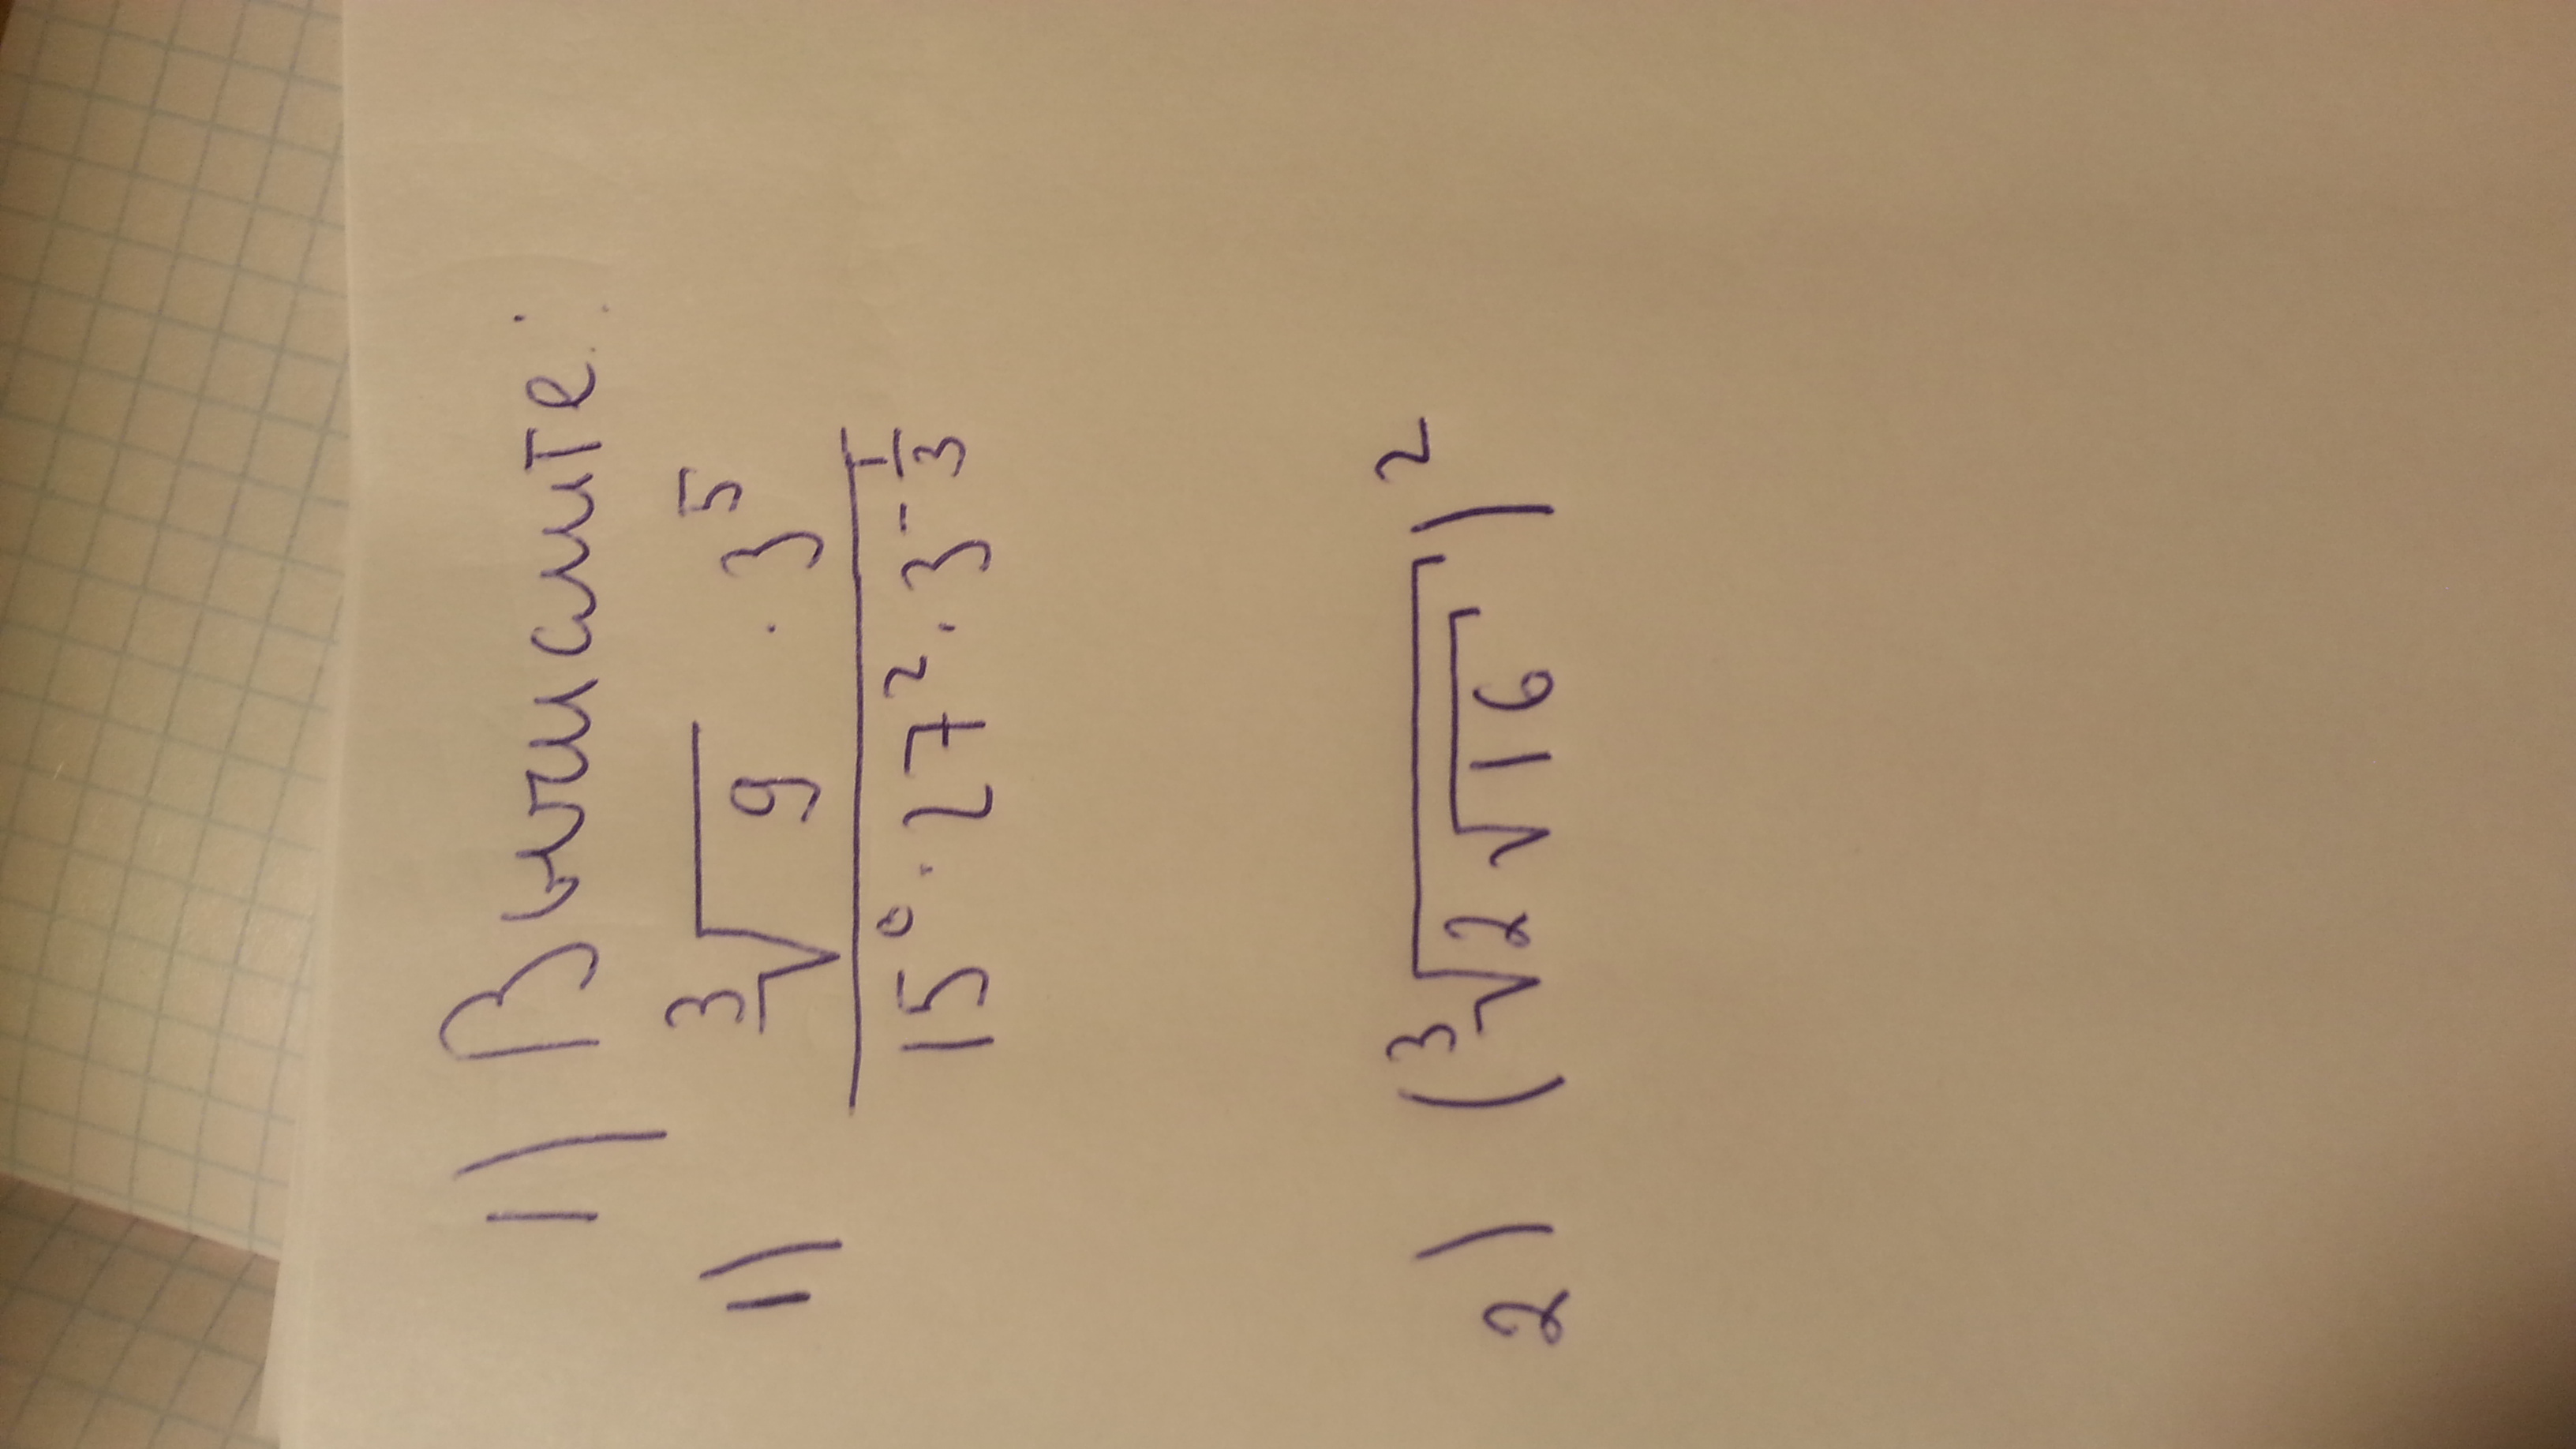 1) Вычислите:
1) ∛9 · 3⁵
15⁰ · 27² · 3^(-1/3)
2) (∛(2√16))²